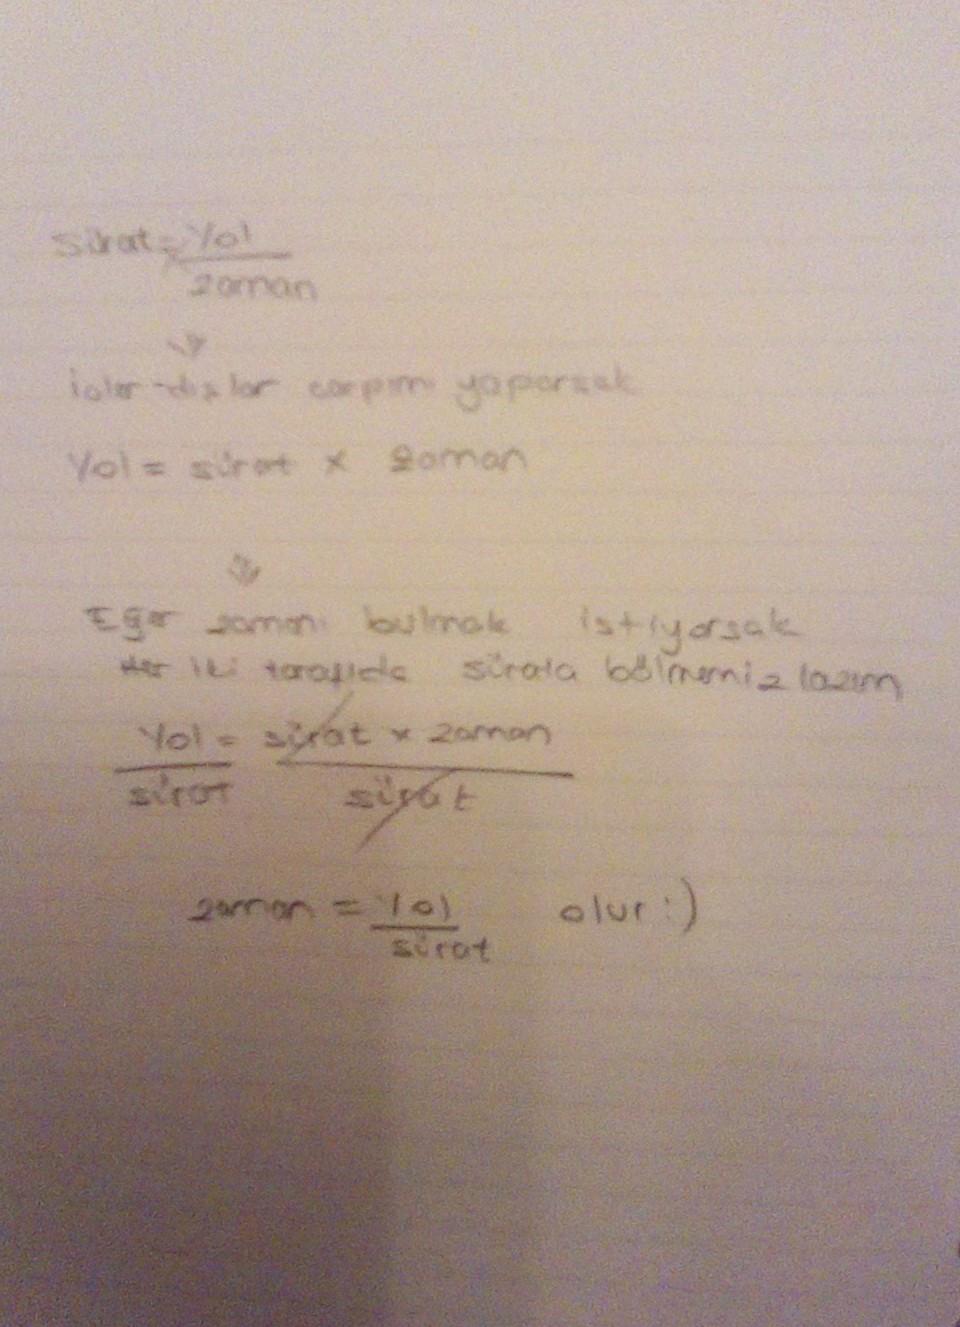 Sürat = Yol
zaman
İçler-dışlar çarpımı yaparsak
Yol = sürat x zaman
Eğer zamanı bulmak istiyorsak
Her iki tarafıda sürata bölmemiz lazım
Yol = sürat x zaman
sürat sürat
zaman = Yol olur :)
sürat